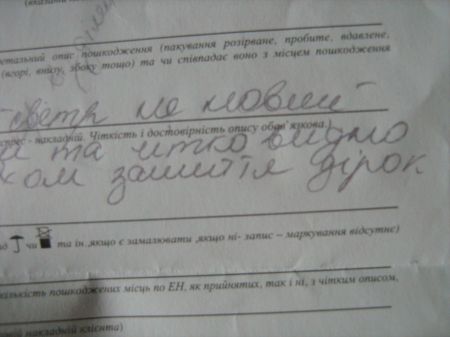 (вказати
детальний опис пошкодження (пакування розірване, пробите, вдавлене,
(вгорі, внизу, збоку тощо) та чи співпадає воно з місцем пошкодження
светр не новий
експрес - накладній. Чіткість і достовірність опису обов'язкова.
та чітко видно
ком зашиття дірок
чи та ін ,якщо є замалювати ,якщо ні- запис – маркування відсутнє)
кількість пошкоджених місць по ЕН, як прийнятих, так і ні, з чітким описом,
накладній клієнта)